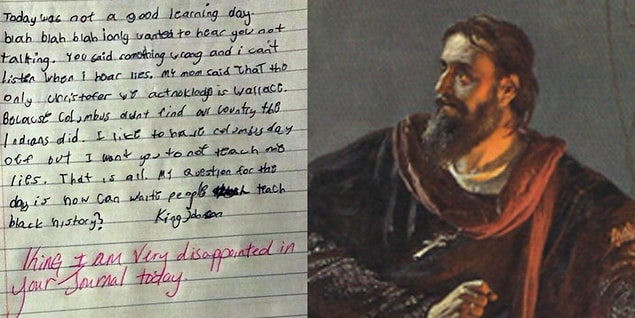 Today was not a good learning day.
blah blah blah i only wanted to hear you not
talking. You said something wrong and i can't
listen when I hear lies. My mom said that the
only christofer we acknowledge is wallace.
Because Columbus didnt find our country the
Indians did. I like to have columbus day
off but I want you to not teach me
lies. That is all. My question for the
day is how can white people teach
black history?
King Johnson
King I am very disappointed in
your Journal today.